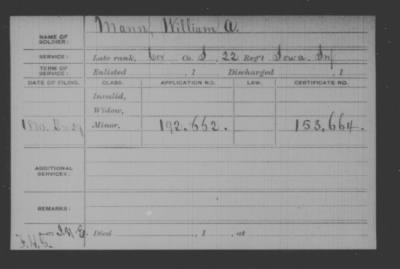 NAME OF SOLDIER: Mann, William A.
SERVICE: Late rank, Co. 22 Reg't Iowa Inf
TERM OF SERVICE: Enlisted , 1 Discharged , 1
DATE OF FILING. CLASS. APPLICATION NO. LAW. CERTIFICATE NO.
Invalid,
Widow,
Minor, 192.662. 153.664.
ADDITIONAL SERVICES:
REMARKS:
Died , 1 , at